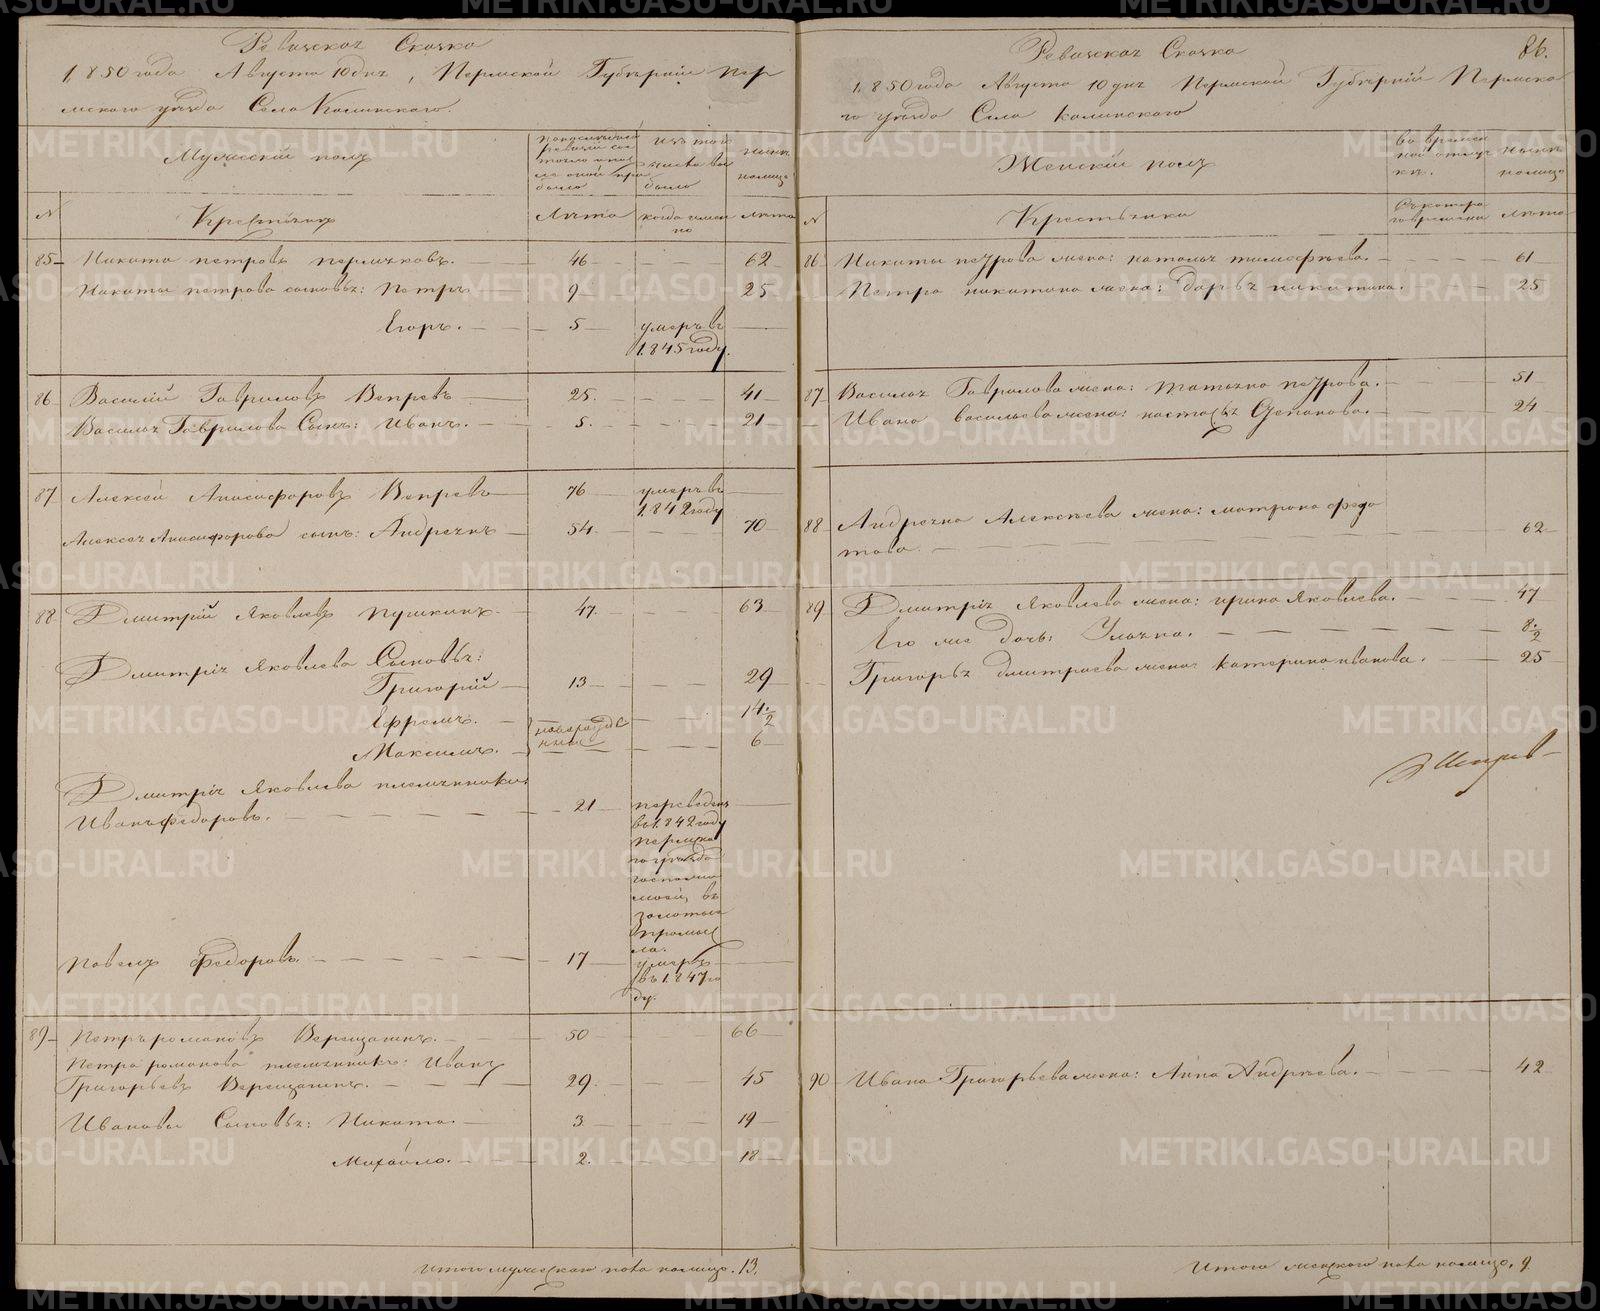 Ревизская Сказка
1850 года Августа 10 дня, Пермской Губерніи Пер
мского уезда Села Калинского
Мужескій полъ
По последней
ревизіи сос
тояло и по
сле оной при
было
Изъ того
числа вы
было
Ныне
налицо
№
Крестьяня
Лета
когда имен
но
лета
85 Никита петровъ пермяковъ. 46 62
Никиты петрова сыновья: Петръ 9 25
Егоръ. 5 умеръ въ
1845 году.
86 Василій Гавриловъ Вепревъ 25. 41
Василья Гаврилова Сынъ: Иванъ. 5. 21
87 Алексей Анисифоровъ Вепревъ 76 умеръ въ
1842 году
Алексея Анисифорова сынъ: Андреянъ 54. 70
88 Дмитрій Яковлевъ пушкинъ. 47. 63
Дмитрія Яковлева Сыновья:
Григорій 13 29
Ефремъ. новорожде 14 1/2
Максимъ. нные 6
Дмитрія Яковлева племянники
Иванъ федоровъ. 21 переведенъ
въ 1842 году
пермска
го уезда
въ
золотые
промыс
ла.
Павелъ федоровъ. 17 умеръ
въ 1847 го
ду.
89 Петръ романовъ Верещагинъ. 50 66
Петра романова племянникъ: Иванъ
Григорьевъ Верещагинъ. 29. 45
Ивановы Сыновья: Никита. 3 19
Михайло. 2. 18
Итого мужеского пола налицо. 13.
86.
Ревизская Сказка
1850 года Августа 10 дня Пермской Губерніи Пермска
го уезда Села Калинского
Женскій полъ
во времен
ной отлуч
ки.
ныне
налицо
№
Крестьянки
съ котора
го времени
лета
86 Никиты петрова жена: наталья тимофеева. 61
Петра никитина жена: дарья никитина. 25
87 Василья Гаврилова жена: татьяна петрова. 51
Ивана васильева жена: настасья Степанова. 24
88 Андреяна Алексеева жена: матрона федо
това. 62
89 Дмитрія Яковлева жена: ирина Яковлева. 47
Его же дочь: Ульяна. 8 1/2
Григорья дмитриева жена катерина иванова. 25
90 Ивана Григорьева жена: Анна Андреева. 42
Итого женского пола налицо. 9
METRIKI.GASO-URAL.RU